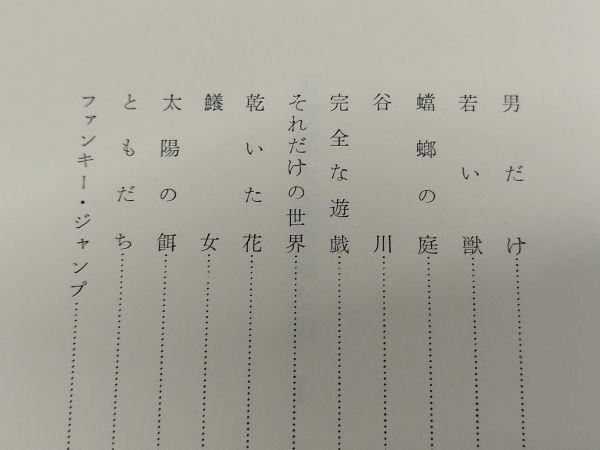 男だけ
若い獣
蟷螂の庭
谷川
完全な遊戯
それだけの世界
乾いた花
鱶女
太陽の餌
ともだち
ファンキー・ジャンプ